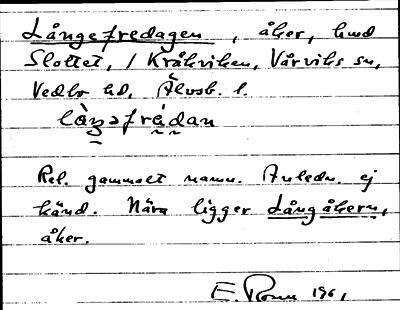 Långefredagen, åker, hmd
Slottet, / Kråkviken, Vårviks sn,
Vedbo hd, Älvsb. l.
làŋəfrédan
Rel. gammalt namn. Anledn. ej
känd. Nära ligger Långåkern,
åker.
E. Ronn 1961